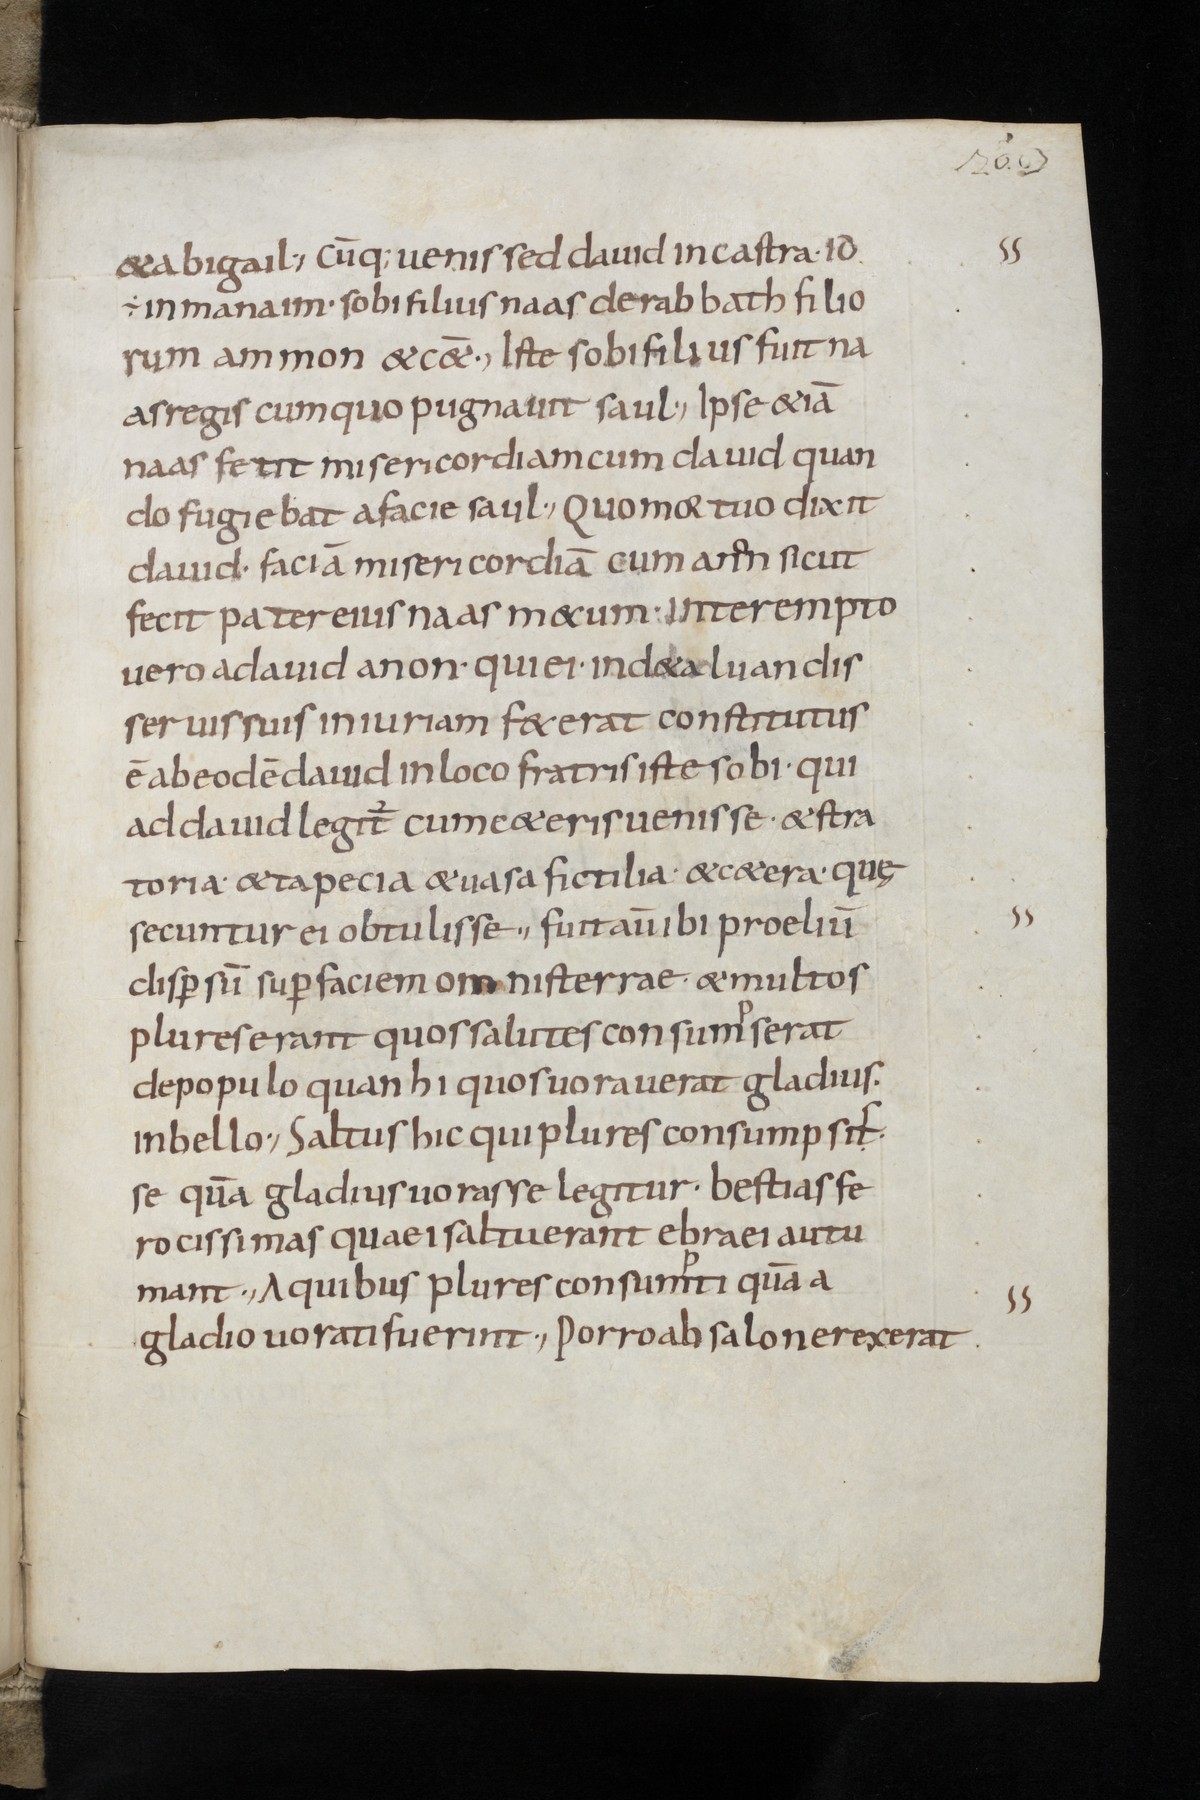 &abigail·, Cūq; uenissed dauid incastra· id
÷ inmanaim· sobi filius naas derabbath filio
rum ammon &c&̄·, Iste sobi filius fuit na
asregis cumquo pugnauit saul·, Ipse &iā
naas fecit misericordiamcum dauid quan
do fugiebat afacie saul·, Quom& tuo dixit
dauid· faciā misericordiā cum ann̄ sicut
fecit pater eius naas m&cum· interempto
uero adauid anon· qui ei· ind&aluandis
seruissuis iniuriam f&erat constitutus
ē abeodē dauid inloco fratris iste sobi· qui
addauid legit᷑ cumc&eris uenisse· &stra
toria· &tapecia &uasa fictilia· &c&era· quę
secuntur ei obtulisse·, fuit aū ibi proeliū
disꝑsū suꝑfaciem omnisterrae· &multos
plures erant quos salutes consumpserat
depopulo quan hi quos uorauerat gladius·
inbello·, Saltus hic qui plures consumpsis
se quā gladius uorasse legitur· bestias fe
rocissimas quae i saltu erant ebraei autu
mant·, A quibus plures consumpti quā a
gladio uorati fuerint·, Porro absalon erexerat